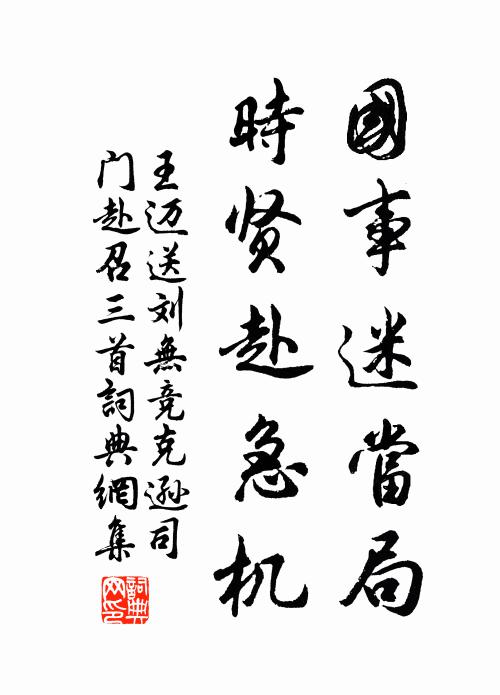 國事迷當局
時贤赴急机
王迈送刘無竞克逊司
门赴召三首詞典網集
詞典
网印